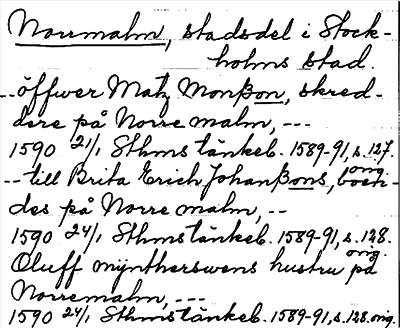 Norrmalm, stadsdel i Stock-
holms stad.
-- öffwer Matz Monßon, skred-
dere på Norre malm, ---
1590 21/1 Sthms tänkeb. 1589-91, s. 127.
orig.
-- till Brita Erich Johanßons, boen-
des på Norre malm, --
1590 24/1 Sthms tänkeb. 1589-91, s. 128.
orig.
Oluff mÿntherswens hustru på
Norremalm, ---
1590 24/1 Sthms tänkeb. 1589-91, s. 128. orig.